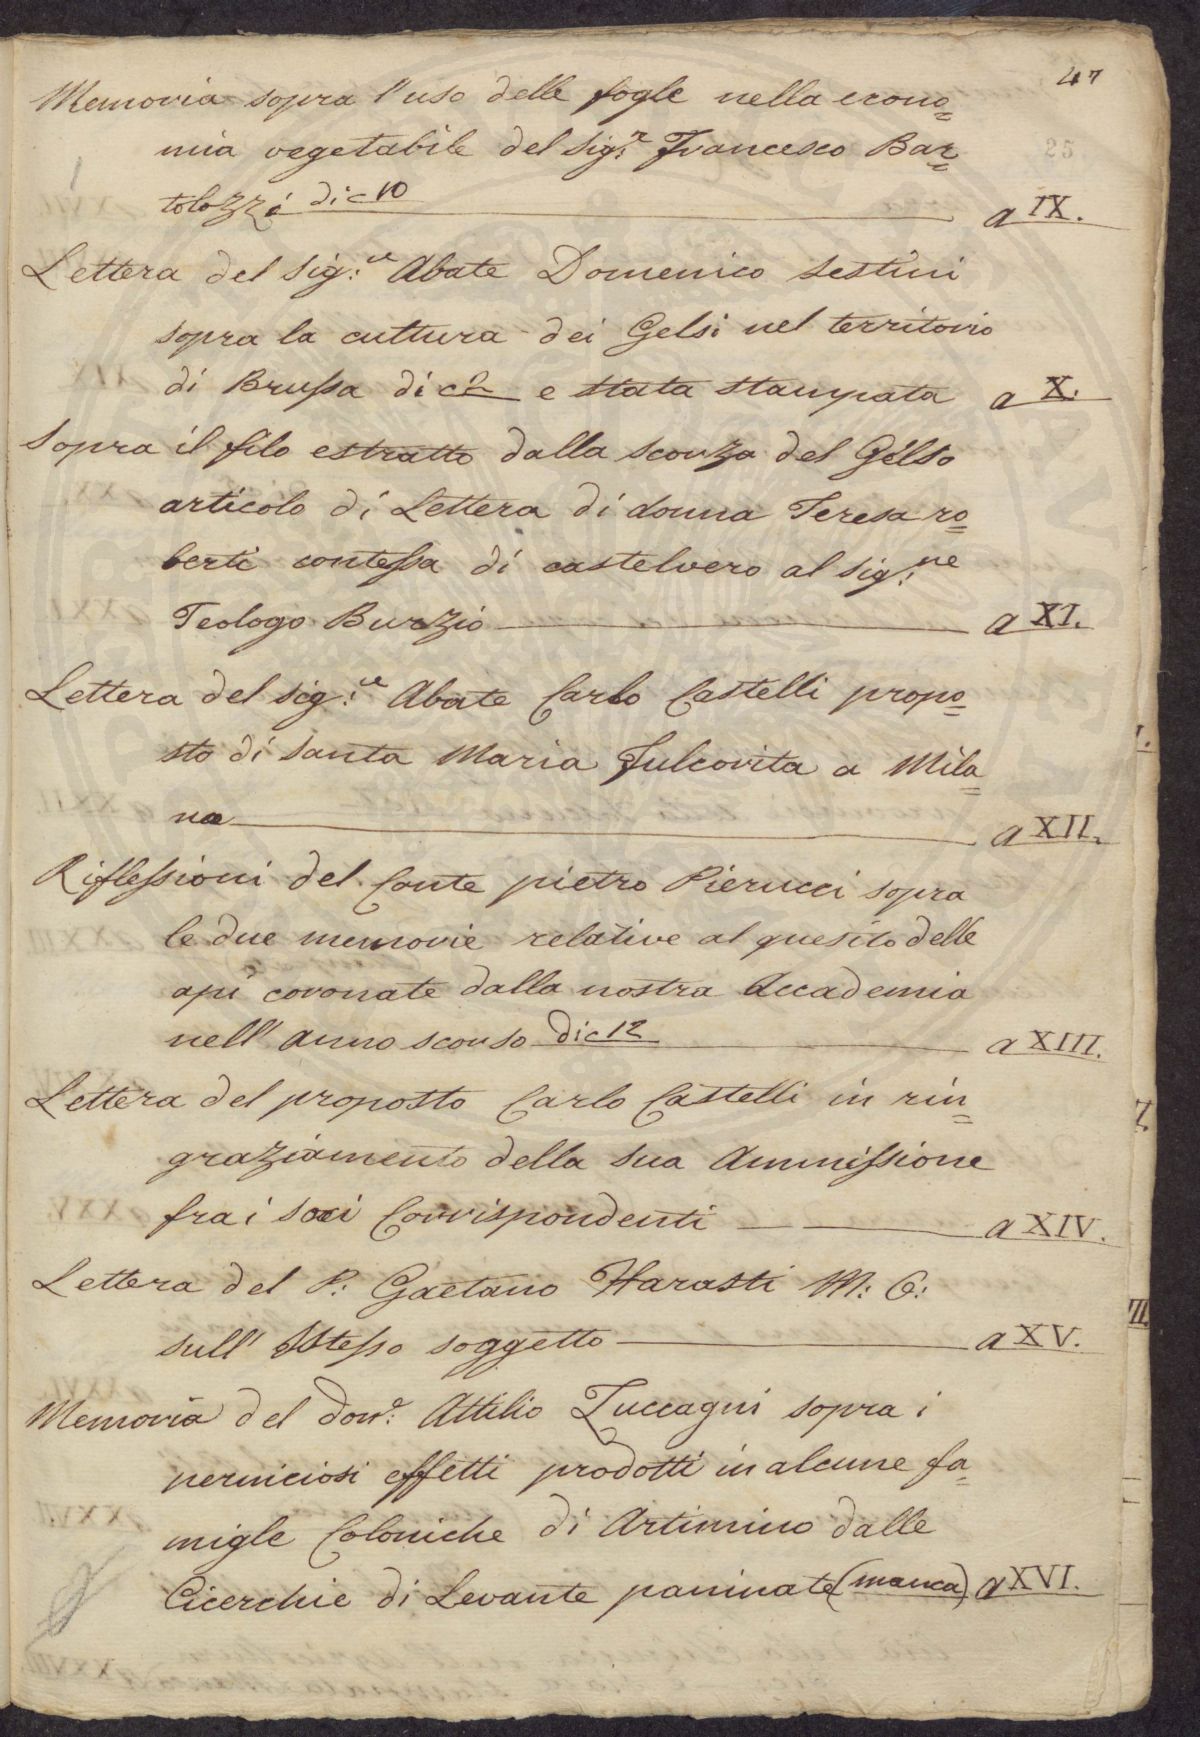 47
25
Memoria sopra l'uso delle fogle nella econo=
mia vegetabile del sig.re Francesco Bar=
tolozzi dic 10 a IX.
Lettera del sig:re Abate Domenico Sestini
sopra la cultura dei Gelsi nel territorio
di Brussa di c 2 e stata stampata a X.
Sopra il filo estratto dalla scorza del Gelso
articolo di Lettera di donna Teresa ro=
berti contessa di castelvero al sig:re
Teologo Burzio a XI.
Lettera del sig:re Abate Carlo Castelli propo=
sto di Santa Maria Fulcorita a Mila=
no a XII.
Riflessioni del Conte pietro Pierucci sopra
le due memorie relative al quesito delle
api coronate dalla nostra Accademia
nell' anno scorso dic 12 a XIII.
Lettera del proposto Carlo Castelli in rin=
graziamento della sua Ammissione
fra i soci Corrispondenti a XIV.
Lettera del P: Gaetano Harasti M: C:
sull' istesso soggetto a XV.
Memoria del Attilio Zuccagni sopra i
perniciosi effetti prodotti in alcune fa=
migle Coloniche di Artimino dalle
Cicerchie di Levante paninate (manca) a XVI.